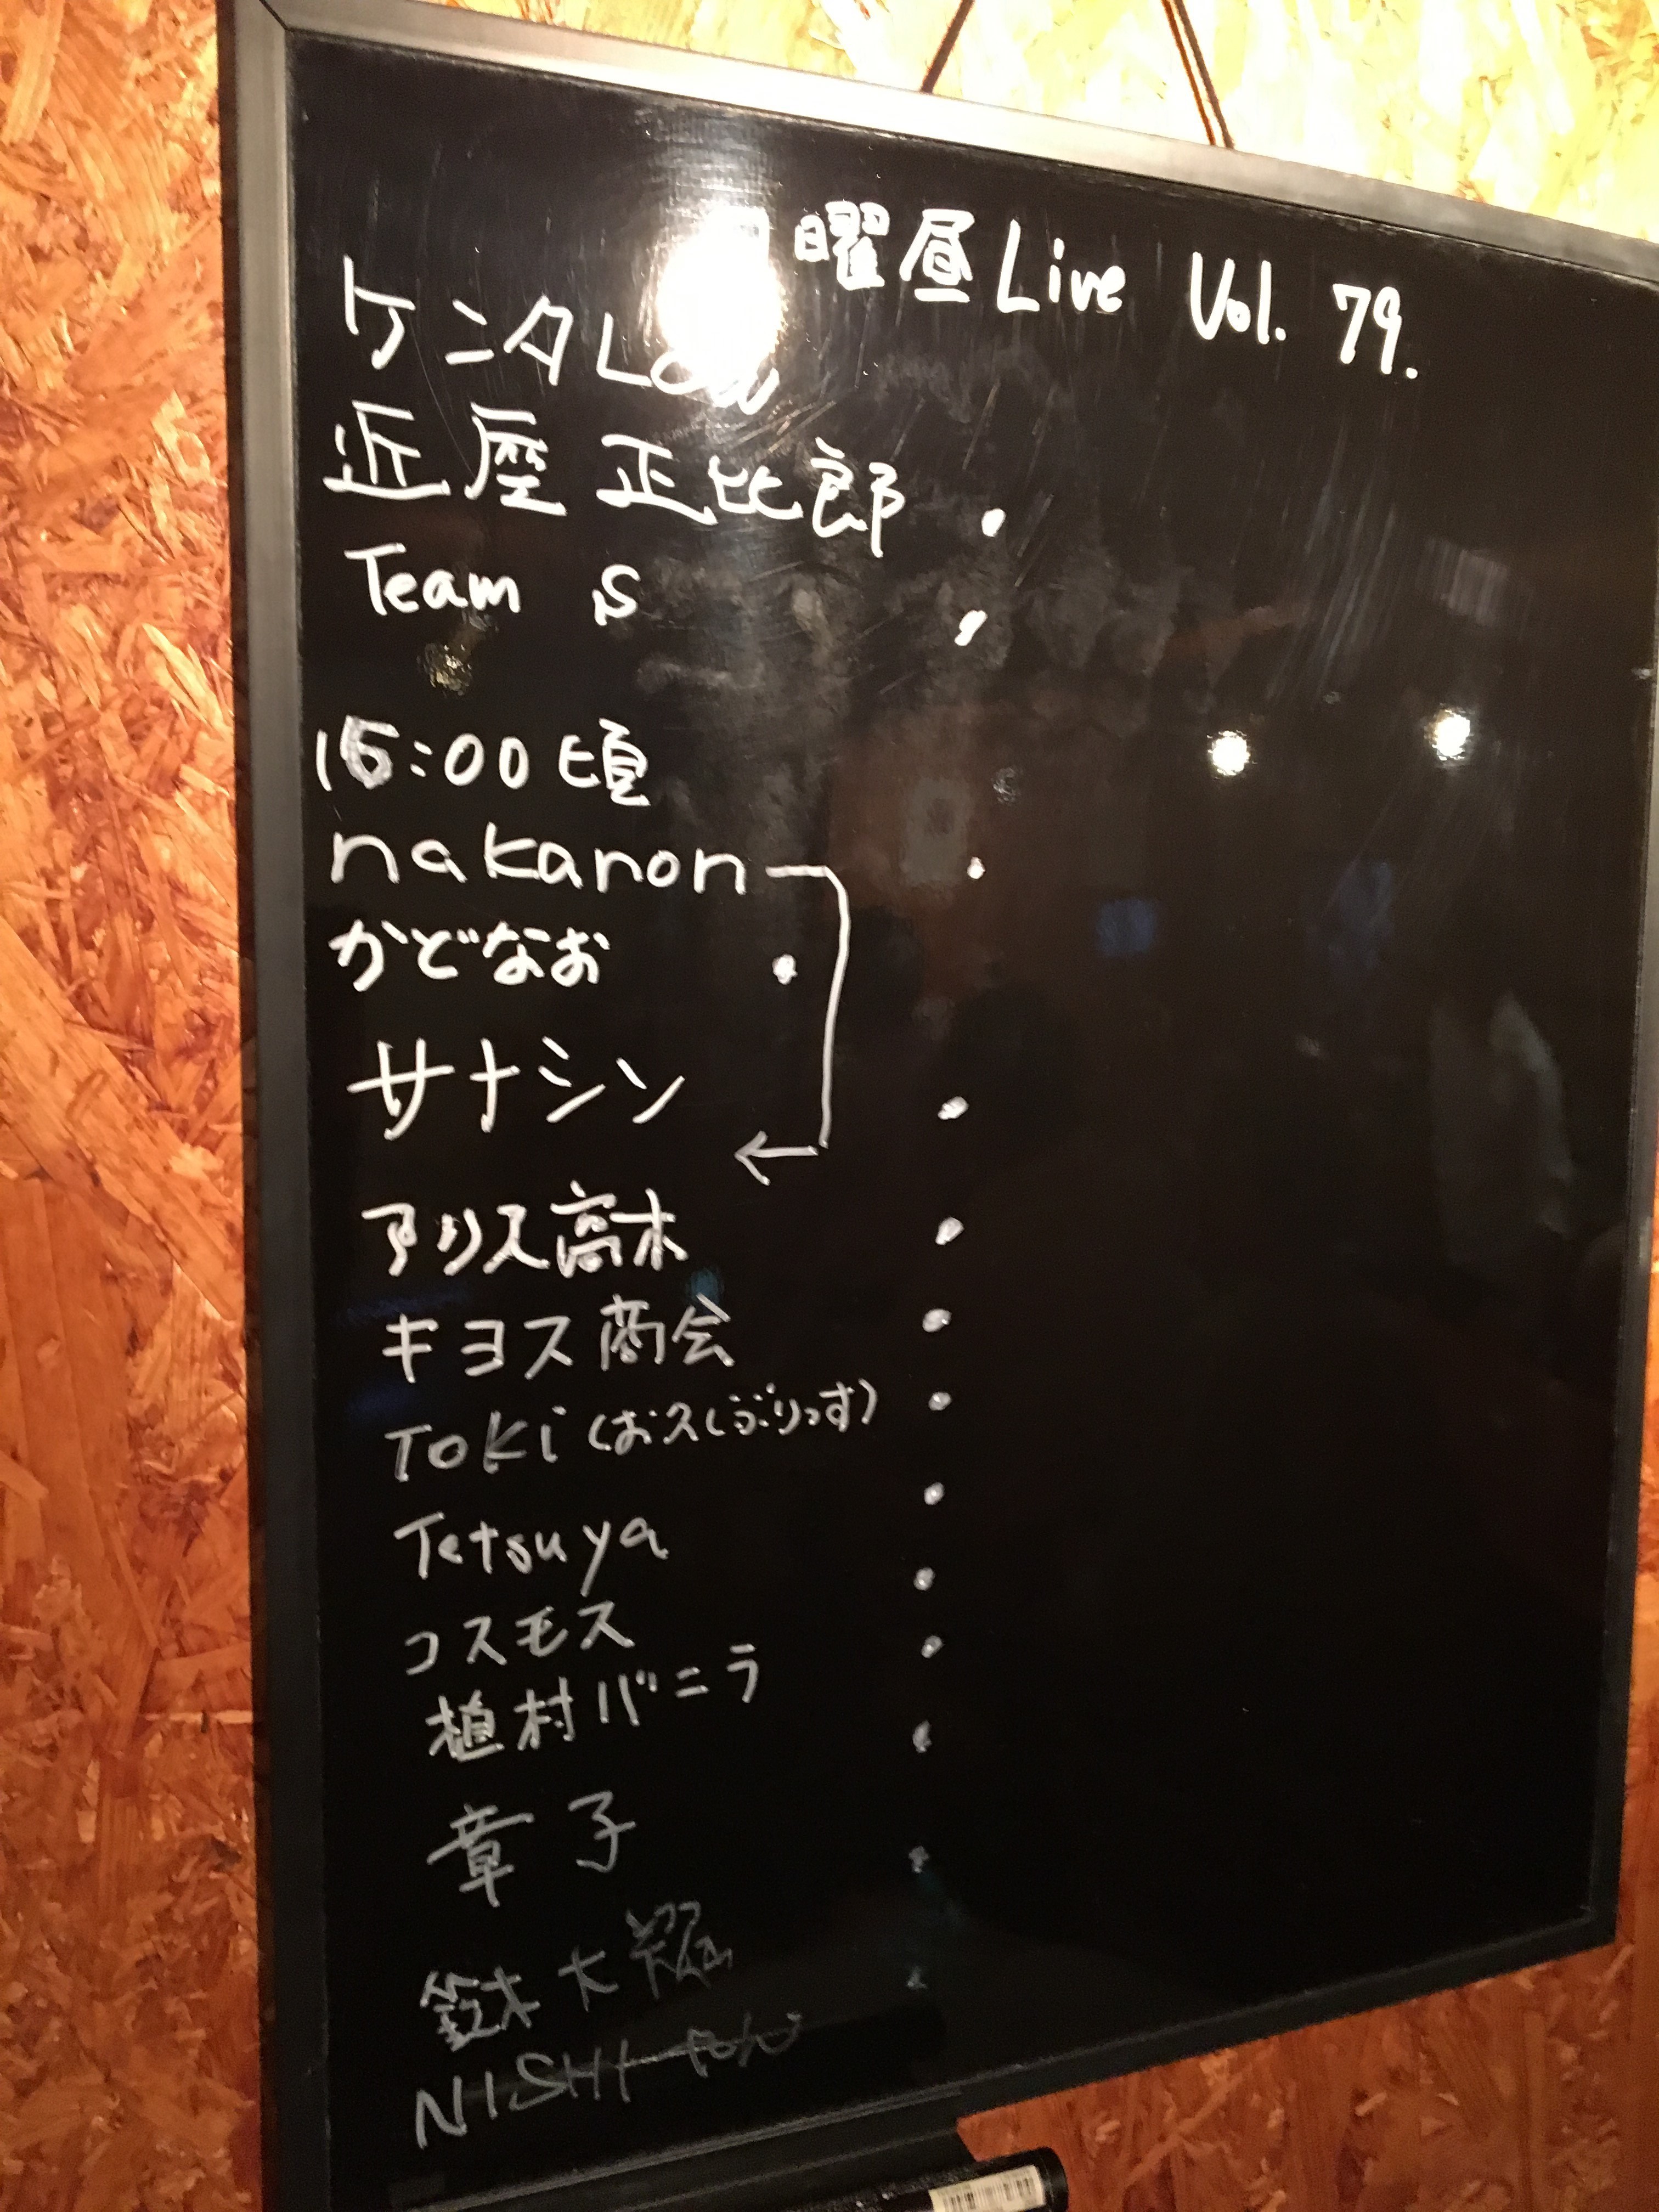 曜昼Live Vol. 79.
ケンタLow
近座 正比郎
Team S
15:00頃
nakanon
かどなお
サナシン
アリス高木
キヨス商会
Toki (おスしぶりっす)
Tetsuya
コスモス
植村バニラ
章子
鈴木大
NISHI-